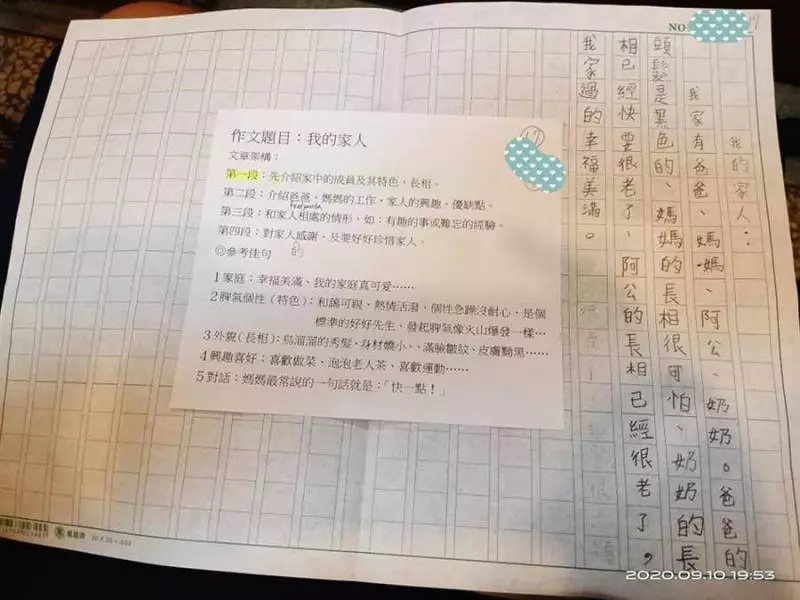 NO.
我的家人：
我家有爸爸、媽媽、阿公、奶奶。爸爸的
頭髮是黑色的、媽媽的長相很可怕、奶奶的長
相已經快要很老了、阿公的長相已經很老了，
我家過的幸福美滿。
17
作文題目：我的家人
文章架構：
第一段：先介紹家中的成員及其特色、長相。
第二段：介紹爸爸、媽媽的工作、家人的興趣、優缺點。
第三段：和家人相處的情形，如：有趣的事或難忘的經驗。
第四段：對家人感謝，及要好好珍惜家人。
的
◎參考佳句
1家庭：幸福美滿、我的家庭真可愛……
2脾氣個性（特色）：和藹可親、熱情活潑、個性急躁沒耐心、是個
標準的好好先生、發起脾氣像火山爆發一樣…
3外貌（長相）：烏溜溜的秀髮、身材嬌小、滿臉皺紋、皮膚黝黑……
4興趣喜好：喜歡做菜、泡泡老人茶、喜歡運動……
5對話：媽媽最常說的一句話就是：「快一點！」
2020.09.10 19:53